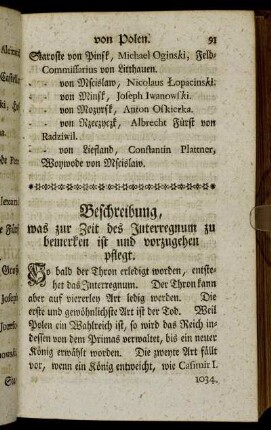 von Polen. 91
Staroste von Pinsk, Michael Oginski, Feld-
Commissarius von Litthauen.
- - von Mscislaw, Nicolaus Łopacinski.
- - von Minsk, Joseph Iwanowski.
- - von Mozyrsk, Anton Oskierka.
- - von Rzeczyczk, Albrecht Fürst von
Radziwil.
- - von Liefland, Constantin Plattner,
Woywode von Mscislaw.
Beschreibung,
was zur Zeit des Interregnum zu
bemerken ist und vorzugehen
pflegt.
So bald der Thron erledigt worden, entste-
het das Interregnum. Der Thron kann
aber auf viererley Art ledig werden. Die
erste und gewöhnlichste Art ist der Tod. Weil
Polen ein Wahlreich ist, so wird das Reich in-
dessen von dem Primas verwaltet, bis ein neuer
König erwählt worden. Die zweyte Art fällt
vor, wenn ein König entweicht, wie Casimir I.
1034.